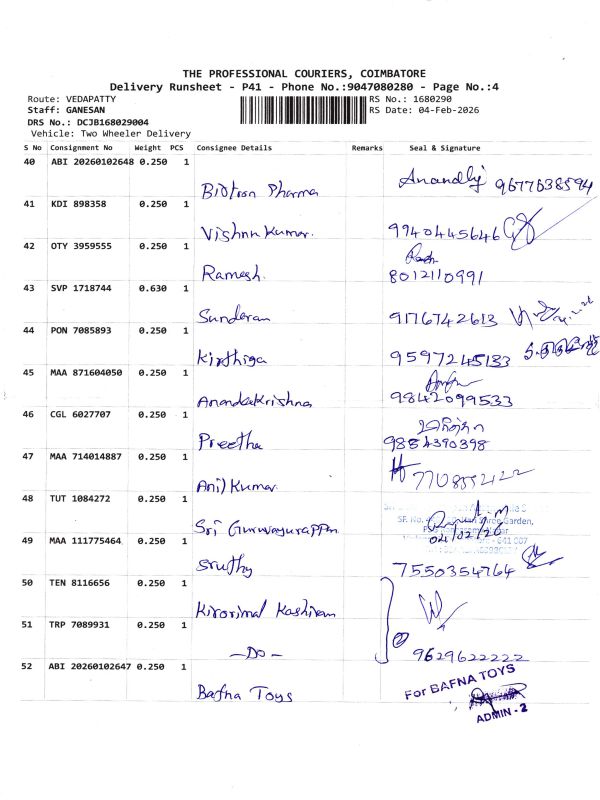 THE PROFESSIONAL COURIERS, COIMBATORE
Delivery Runsheet - P41 - Phone No.:9047080280 - Page No.:4
Route: VEDAPATTY
RS No.: 1680290
Staff: GANESAN
RS Date: 04-Feb-2026
DRS No.: DCJB168029004
Vehicle: Two Wheeler Delivery
S No Consignment No Weight PCS Consignee Details Remarks Seal & Signature
40 ABI 20260102648 0.250 1
Anandhj 9677638594
Biotron Pharma
41 KDI 898358 0.250 1
Vishnu Kumar. 9940445646
42 OTY 3959555 0.250 1
Ramesh. 8012110991
43 SVP 1718744 0.630 1
Sunderan 9176742613
44 PON 7085893 0.250 1
Kirthiga 9597245133
45 MAA 871604050 0.250 1
Anandakrishna 9842099533
46 CGL 6027707 0.250 1
Preetha 9884390398
47 MAA 714014887 0.250 1
Anil Kumar.
48 TUT 1084272 0.250 1
Sri Guruvayurappan 04/02/26
49 MAA 111775464 0.250 1
Sruthy 7550354764
50 TEN 8116656 0.250 1
Kirorimal Kashiram
51 TRP 7089931 0.250 1
-Do- 2 9629622222
52 ABI 20260102647 0.250 1
Bafna Toys
For BAFNA TOYS
ADMIN - 2